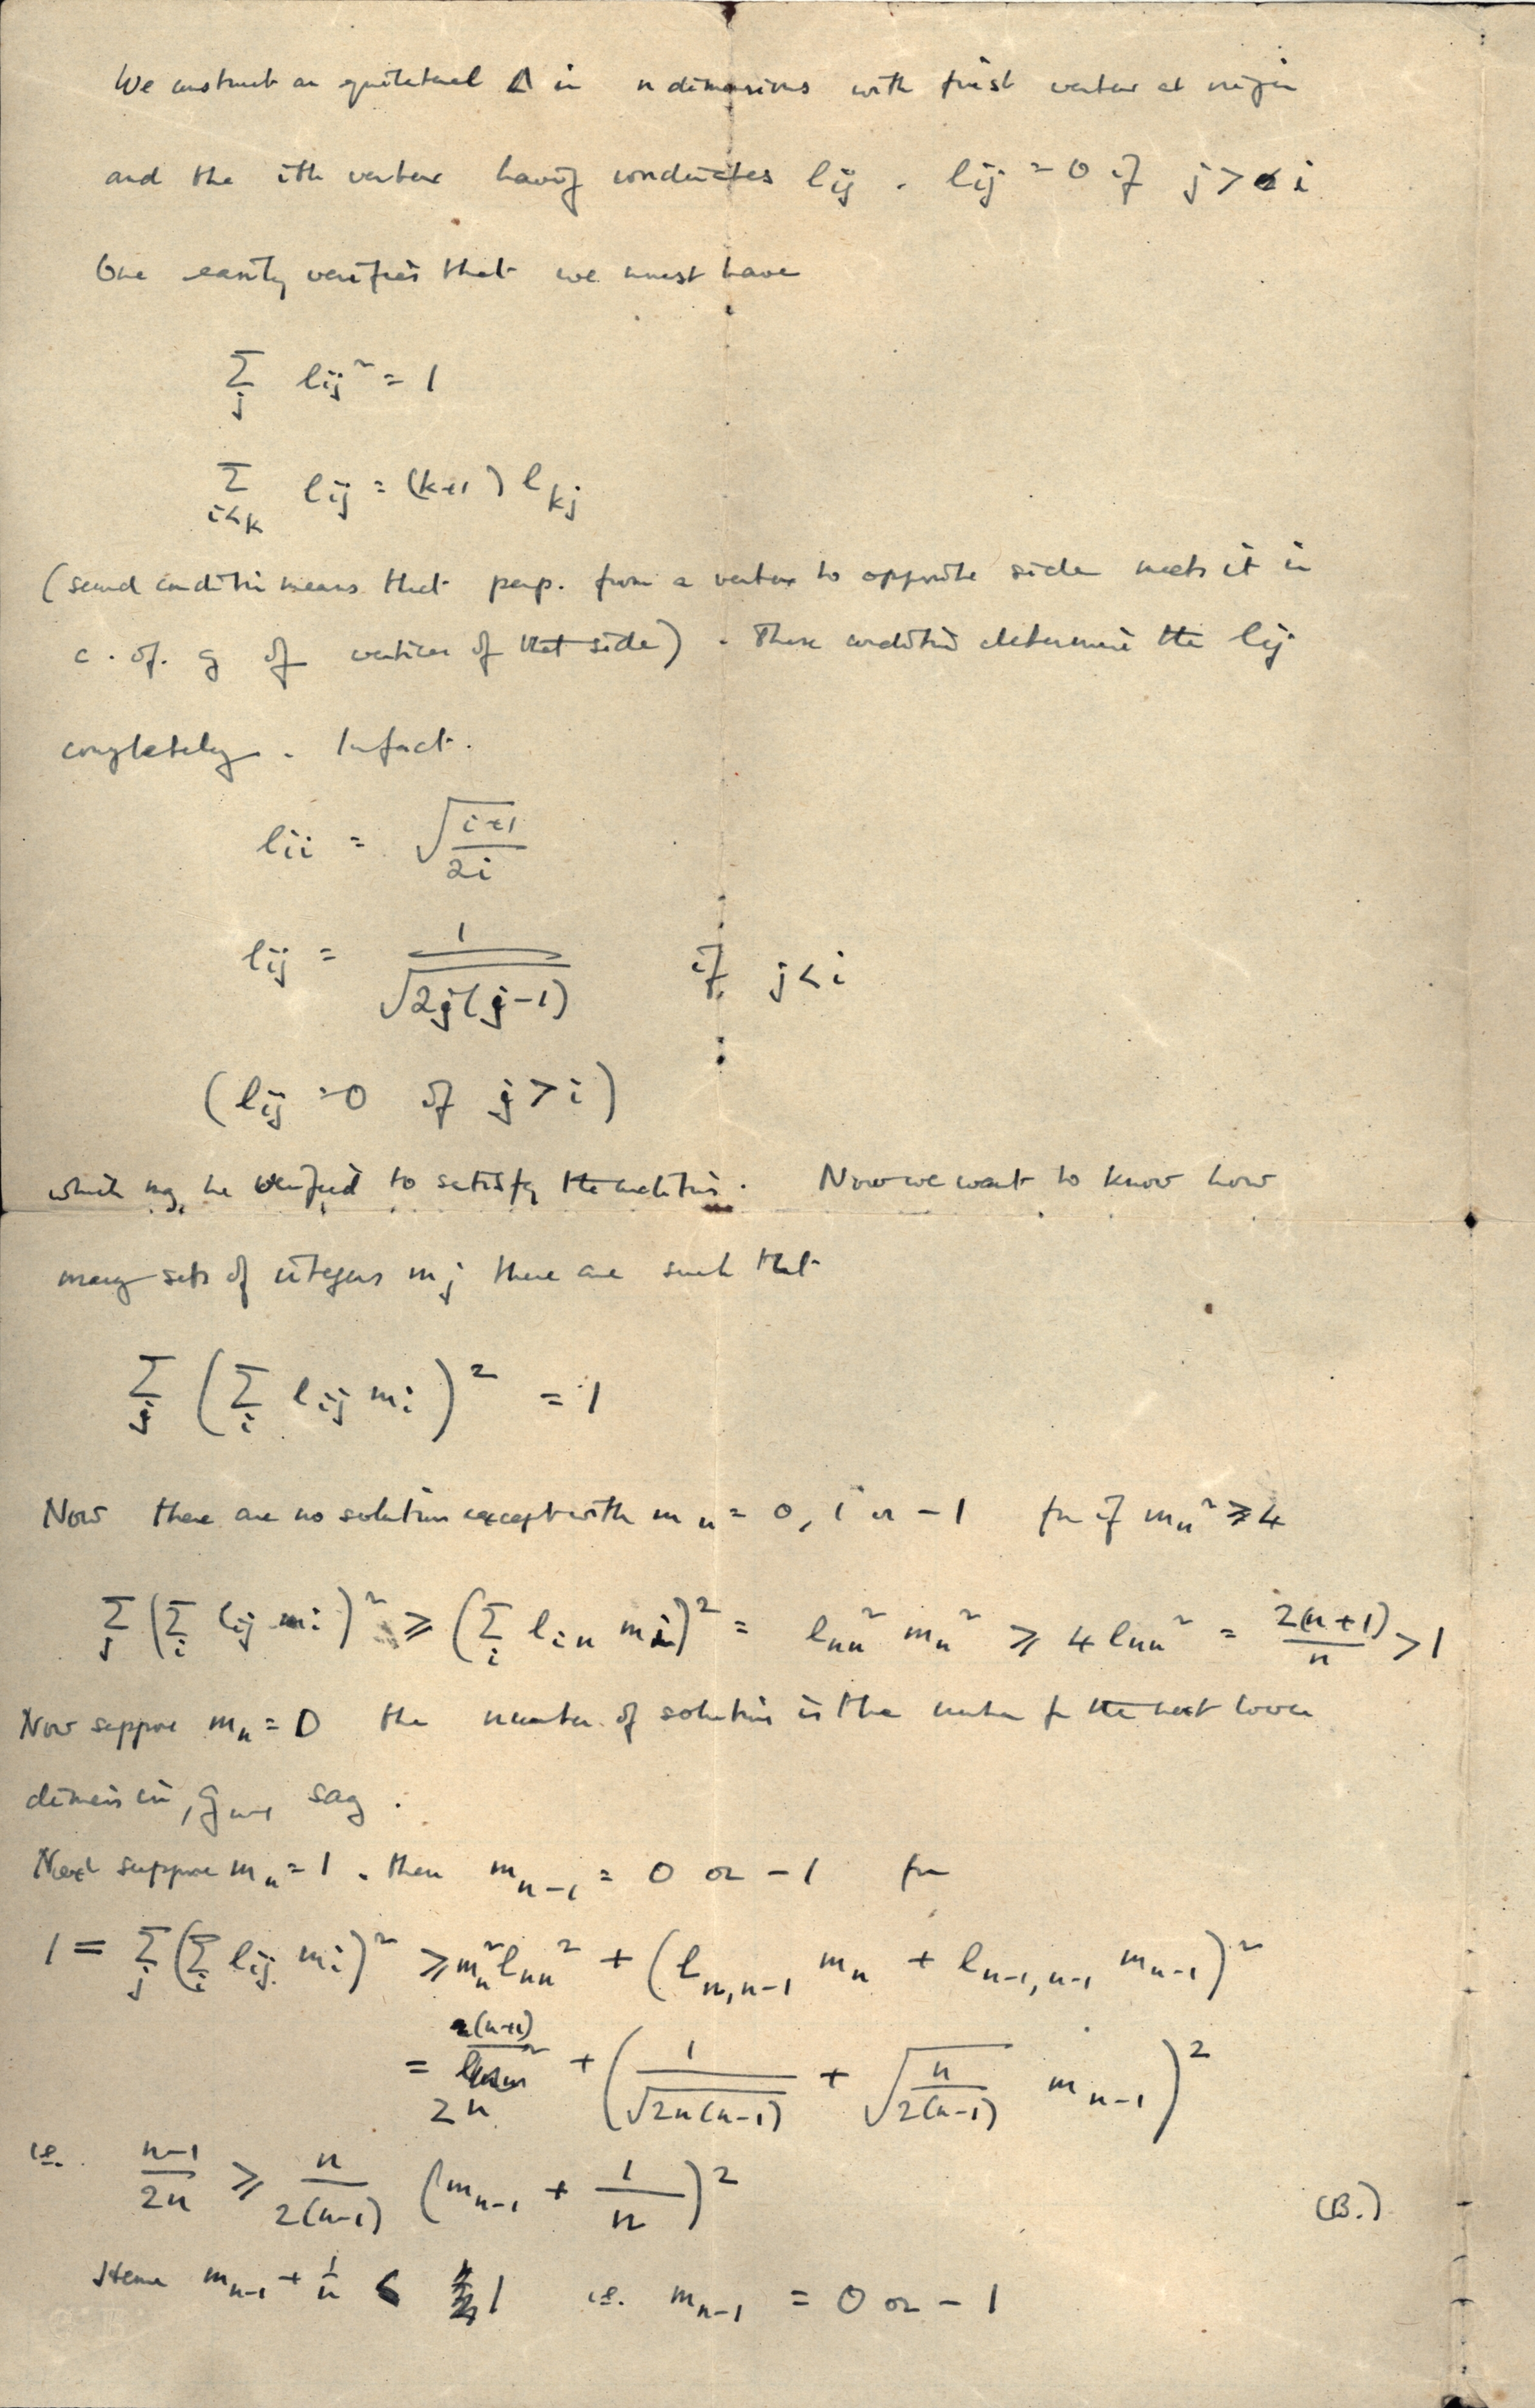 We construct an equilateral Δ in n dimensions with first vertex at origin
and the ith vertex having coordinates lij . lij = 0 if j > i
One easily verifies that we must have
∑_j lij² = 1
∑_{i<k} lij = (k+1) l_kj
(second condition means that perp. from a vertex to opposite side meets it in
c. of. g of vertices of that side) . These conditions determine the lij
completely . In fact .
lii = √((i+1)/2i)
lij = 1/√(2j(j-1)) if j < i
(lij = 0 if j > i)
which may be verified to satisfy the conditions . Now we want to know how
many sets of integers mj there are such that
∑_j (∑_i lij mi)² = 1
Now there are no solution except with m_n = 0, 1 or -1 for if m_n² ⩾ 4
∑_j (∑_i lij mi)² ⩾ (∑_i l_in mi)² = l_nn² m_n² ⩾ 4 l_nn² = 2(n+1)/n > 1
Now suppose m_n = 0 the number of solutions is the number for the next lower
dimension, g_{n-1} say .
Next suppose m_n = 1 . then m_{n-1} = 0 or -1 for
1 = ∑_j (∑_i lij mi)² ⩾ m_n² l_nn² + (l_{n,n-1} m_n + l_{n-1,n-1} m_{n-1})²
= (n+1)/2n + (1/√(2n(n-1)) + √(n/2(n-1)) m_{n-1})²
i.e. (n-1)/2n ⩾ n/2(n-1) (m_{n-1} + 1/n)²
(B.)
Hence m_{n-1} + 1/n < 1 i.e. m_{n-1} = 0 or -1